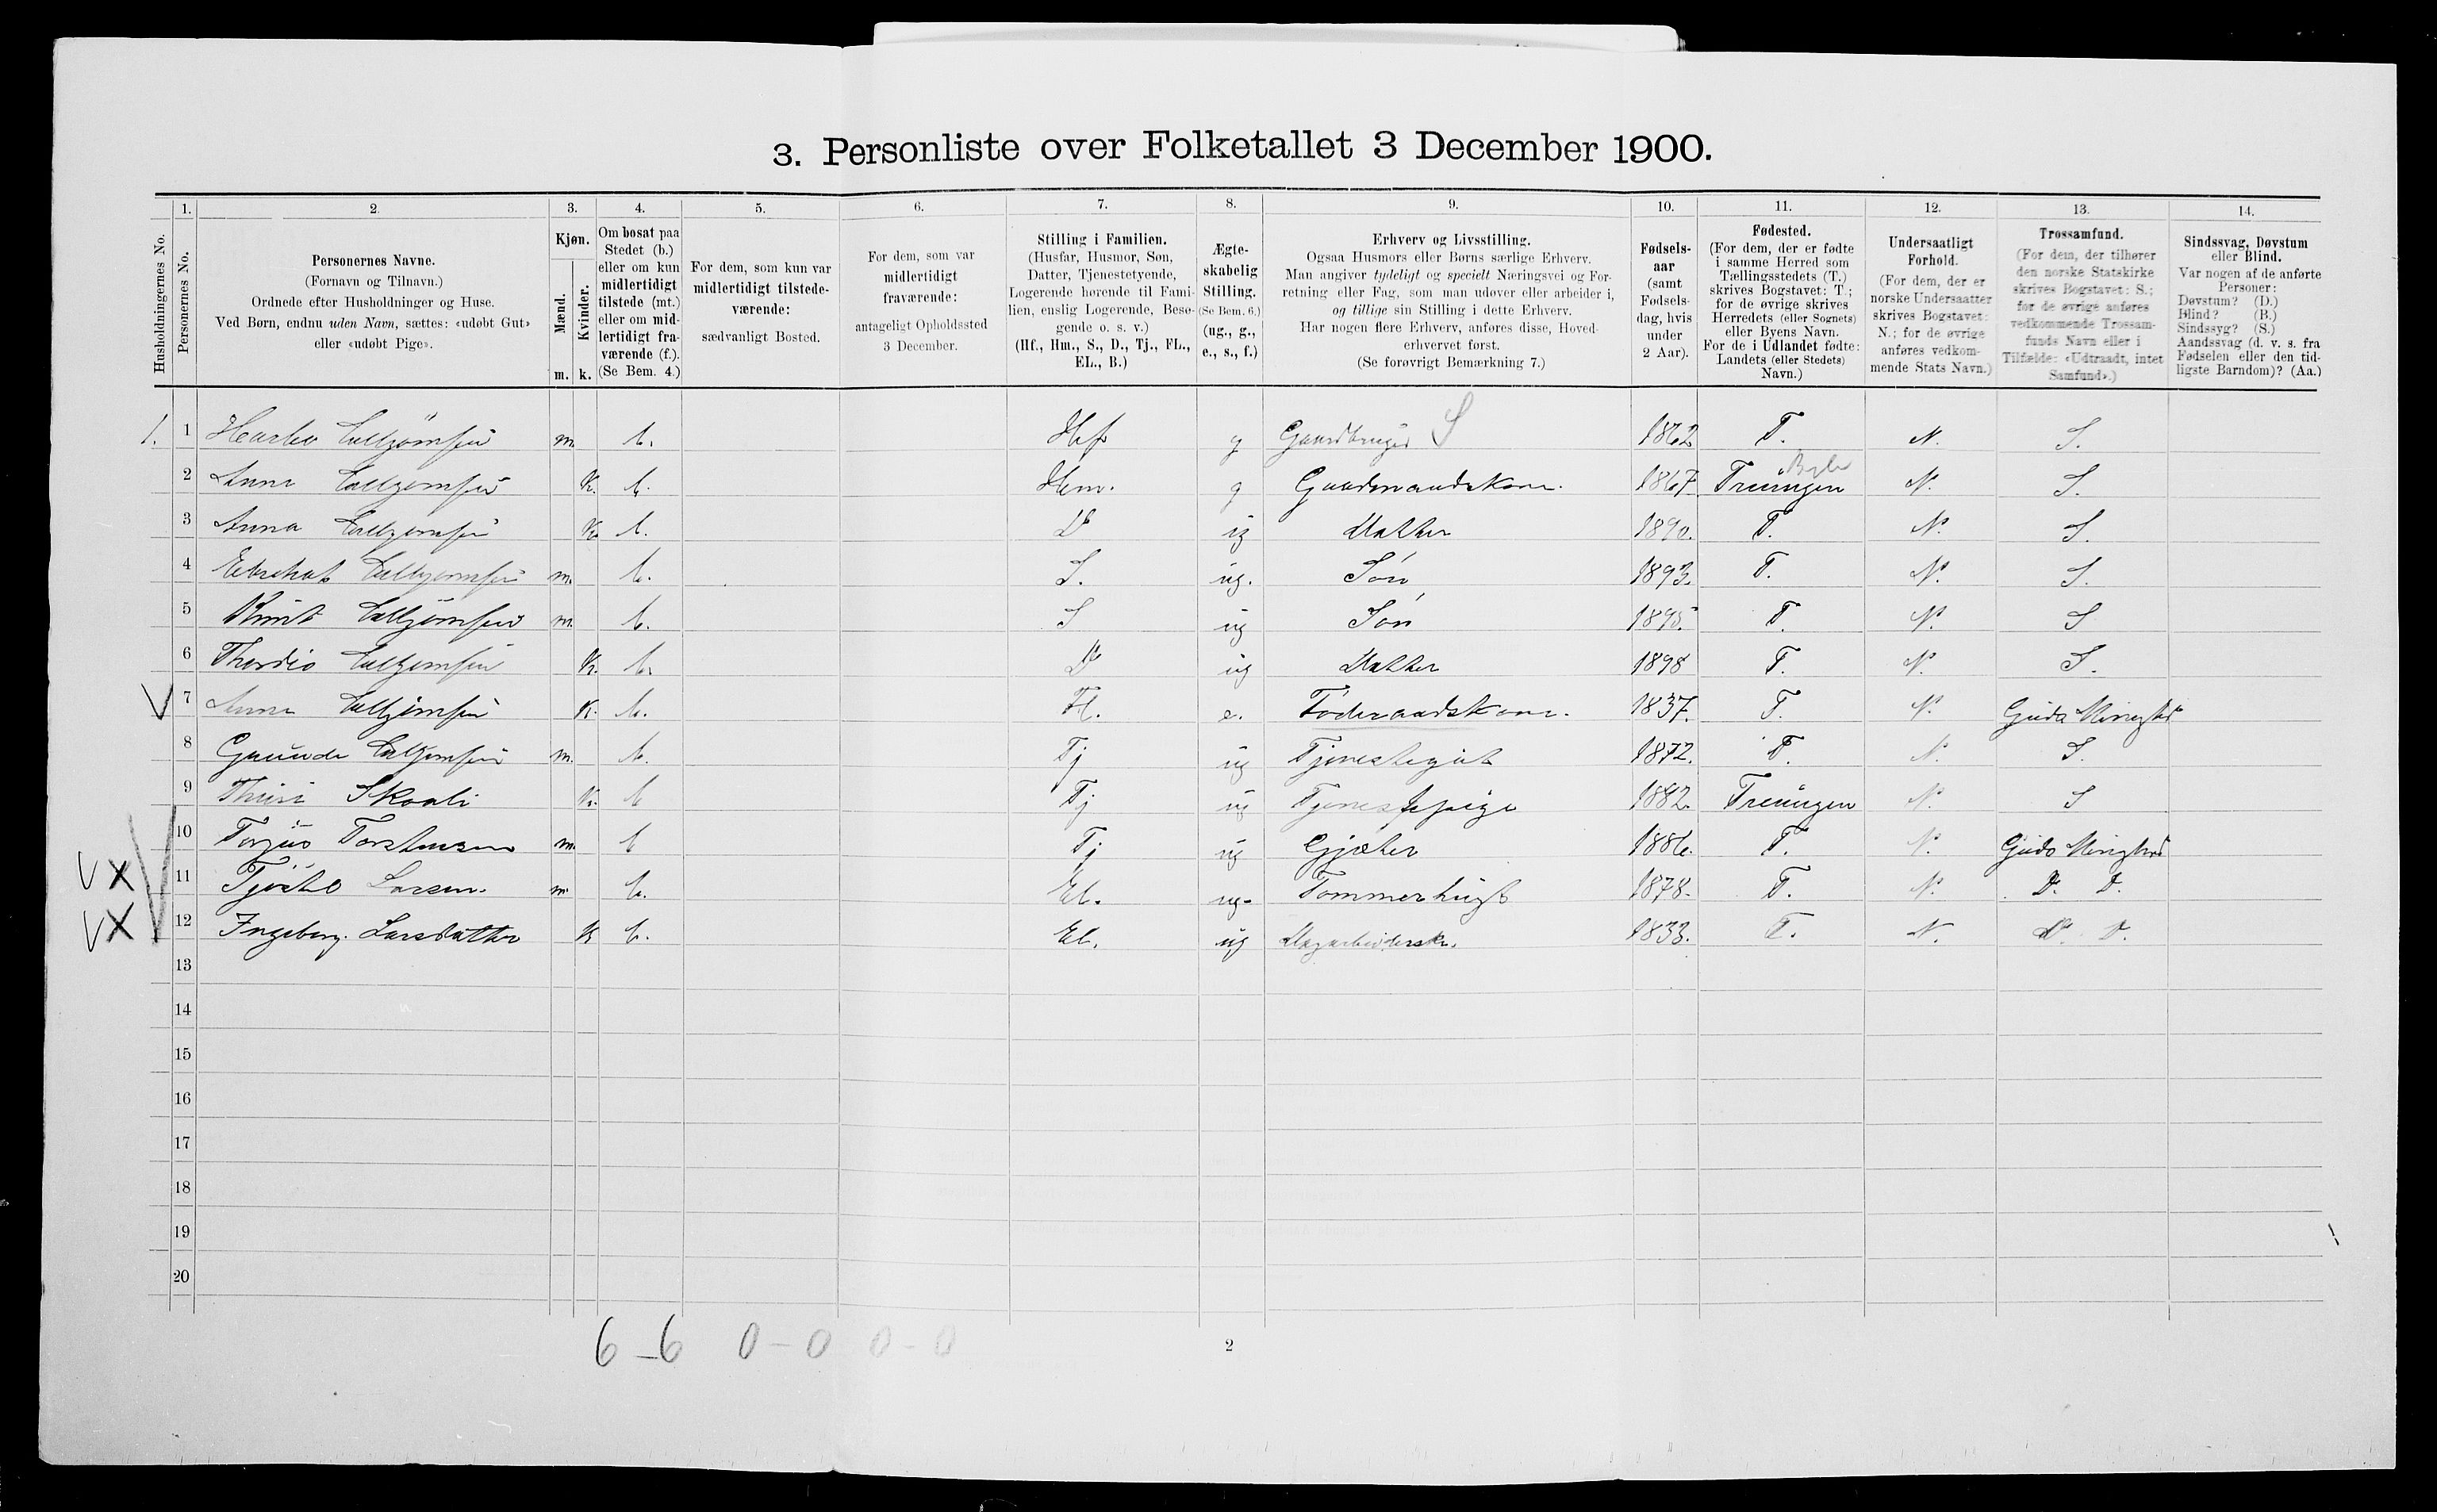 3. Personliste over Folketallet 3 December 1900.
1. 2. 3. 4. 5. 6. 7. 8. 9. 10. 11. 12. 13. 14.
Husholdningernes No.
Personernes No.
Personernes Navne.
(Fornavn og Tilnavn.)
Ordnede efter Husholdninger og Huse.
Ved Børn, endnu uden Navn, sættes: «udøbt Gut»
eller «udøbt Pige».
Kjøn.
Mænd.
Kvinder.
m. k.
Om bosat paa
Stedet (b.)
eller om kun
midlertidigt
tilstede (mt.)
eller om mid-
lertidigt fra-
værende (f.).
(Se Bem. 4.)
For dem, som kun var
midlertidigt tilstede-
værende:
sædvanligt Bosted.
For dem, som var
midlertidigt
fraværende:
antageligt Opholdssted
3 December.
Stilling i Familien.
(Husfar, Husmor, Søn,
Datter, Tjenestetyende,
Logerende hørende til Fami-
lien, enslig Logerende, Besø-
gende o. s. v.)
(Hf., Hm., S., D., Tj., FL.,
EL., B.)
Ægte-
skabelig
Stilling.
(Se Bem. 6.)
(ug., g.,
e., s., f.)
Erhverv og Livsstilling.
Ogsaa Husmors eller Børns særlige Erhverv.
Man angiver tydeligt og specielt Næringsvei og For-
retning eller Fag, som man udøver eller arbeider i,
og tillige sin Stilling i dette Erhverv.
Har nogen flere Erhverv, anføres disse, Hoved-
erhvervet først.
(Se forøvrigt Bemærkning 7.)
Fødsels-
aar
(samt
Fødsels-
dag, hvis
under
2 Aar).
Fødested.
(For dem, der er fødte
i samme Herred som
Tællingsstedets (T.)
skrives Bogstavet: T.;
for de øvrige skrives
Herredets (eller Sognets)
eller Byens Navn.
For de i Udlandet fødte:
Landets (eller Stedets)
Navn.)
Undersaatligt
Forhold.
(For dem, der er
norske Undersaatter
skrives Bogstavet:
N.; for de øvrige
anføres vedkom-
mende Stats Navn.)
Trossamfund.
(For dem, der tilhører
den norske Statskirke
skrives Bogstavet: S.;
for de øvrige anføres
vedkommende Trossam-
funds Navn eller i
Tilfælde: «Udtraadt, intet
Samfund».)
Sindssvag, Døvstum
eller Blind.
Var nogen af de anførte
Personer:
Døvstum? (D.)
Blind? (B.)
Sindssyg? (S.)
Aandssvag (d. v. s. fra
Fødselen eller den tid-
ligste Barndom)? (Aa.)
1. 1 m. b. Hf g Gaardbruger S 1862 T. N. S.
2 K. b. Hm. g Gaardmandskone. 1867 Treungen N. S.
3 Anna K b. D ug Datter 1890. T. N. S.
4 m. b. S. ug. Søn 1893. T. N. S.
5 m. b. S ug Søn 1895. T. N. S
6 K. b. D ug Datter 1898 T. N. S.
V 7 K. b. Fl. e. Føderaadskone. 1837. T. N.
8 m. b. Tj ug Tjenestegut 1872. T. N. S.
9 K. b Tj ug Tjenestepige 1882. Treungen N. S
10 Torjus Torstensen m. b Tj ug Gjæter 1886. T. N.
V X 11 Larsen. m. b. El. ug. Tømmerhugst 1878. T. N. D. D.
V X 12 Ingeborg. Larsdatter K b. El. ug Dagarbeiderske. 1833. T. N. D. D.
13
14
15
16
17
18
19
20
6 – 6 0 – 0 0 – 0
2